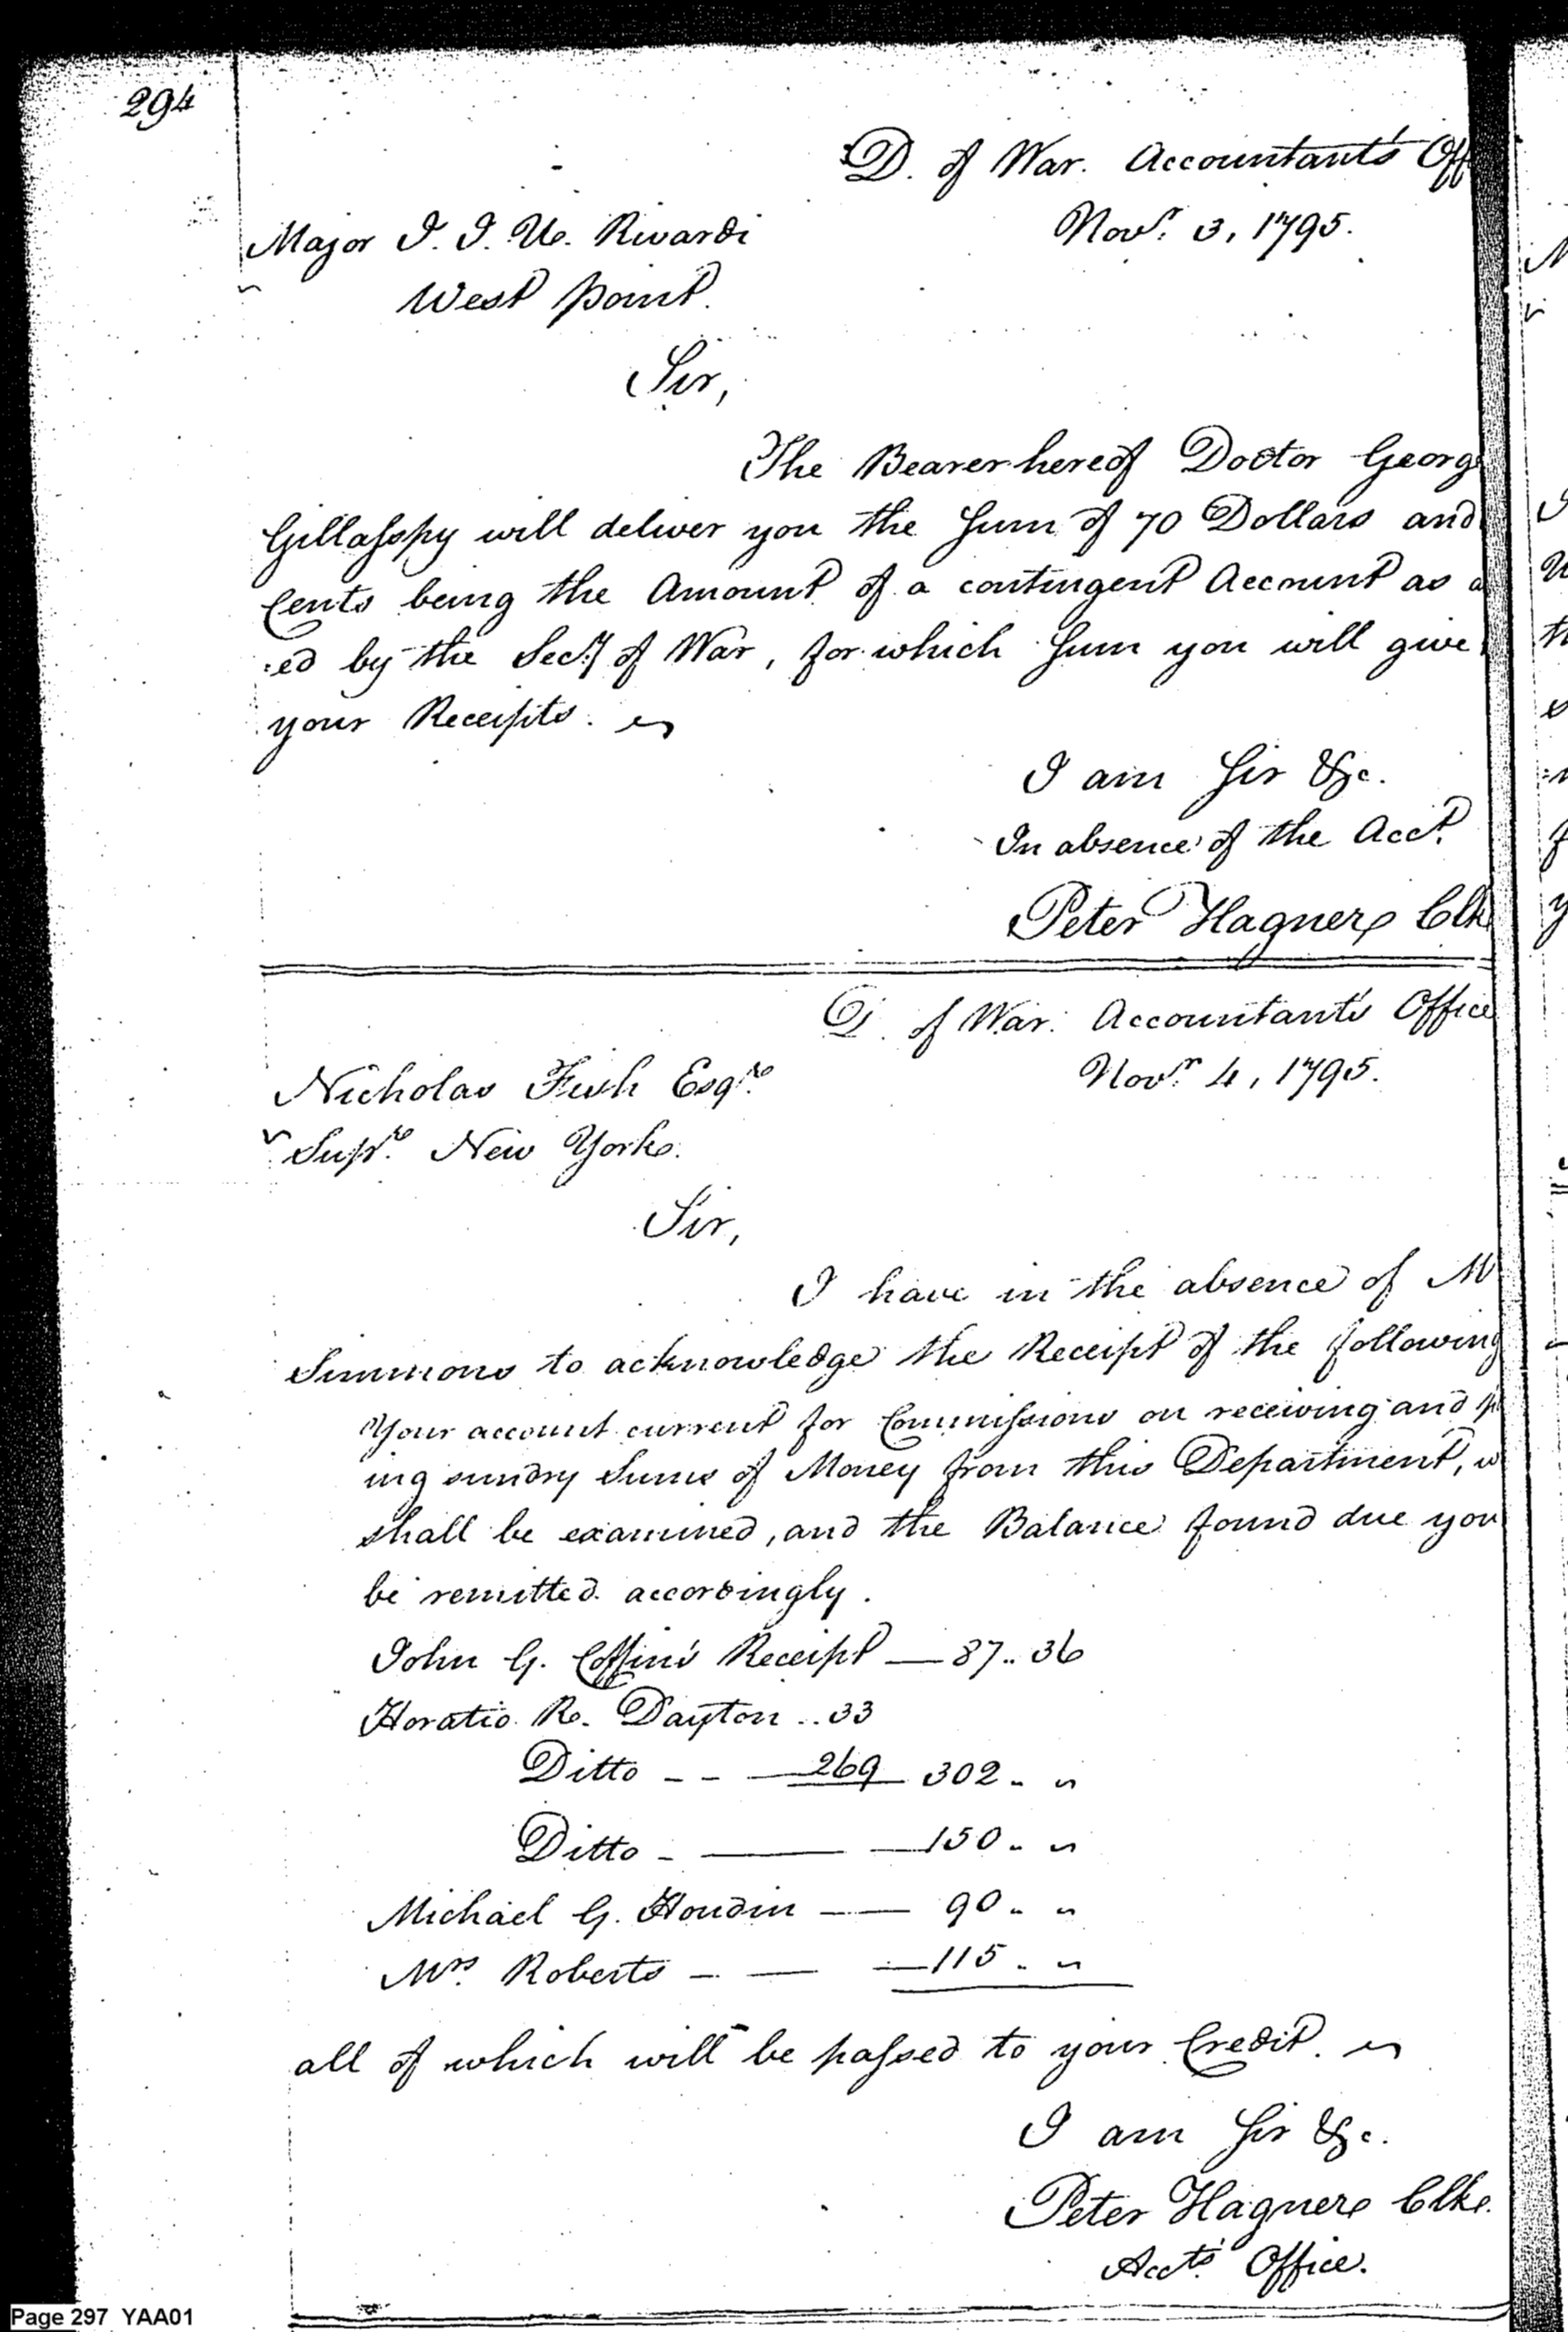 294
D. of War. Accountant's Off
Major I. I. U. Rivardi
Novr. 3, 1795.
West point.
Sir,
The Bearer hereof Doctor Georg
Gillasspy will deliver you the Sum of 70 Dollars and
Cents being the Amount of a contingent Account as a
:ed by the Secy. of War, for which Sum you will give
your Receipts.
I am Sir &c.
In absence of the Acct.
Peter Hagner Clk
D. of War. Accountant's Office
Nicholas Fish Esqre.
Novr. 4, 1795.
Supre. New York.
Sir,
I have in the absence of M
Simmons to acknowledge the Receipt of the following
Your account current for Commissions on receiving and p
ing sundry Sums of Money from this Department, w
shall be examined, and the Balance found due you
be remitted accordingly.
John G. Coffin's Receipt — 87.. 36
Horatio R. Dayton .. 33
Ditto - - — 269 302 - "
Ditto - — — 150 - "
Michael G. Houdin — — 90 - "
Mrs. Roberts - — — 115 - "
all of which will be passed to your Credit.
I am Sir &c.
Peter Hagner Clk.
Accts. Office.
Page 297 YAA01